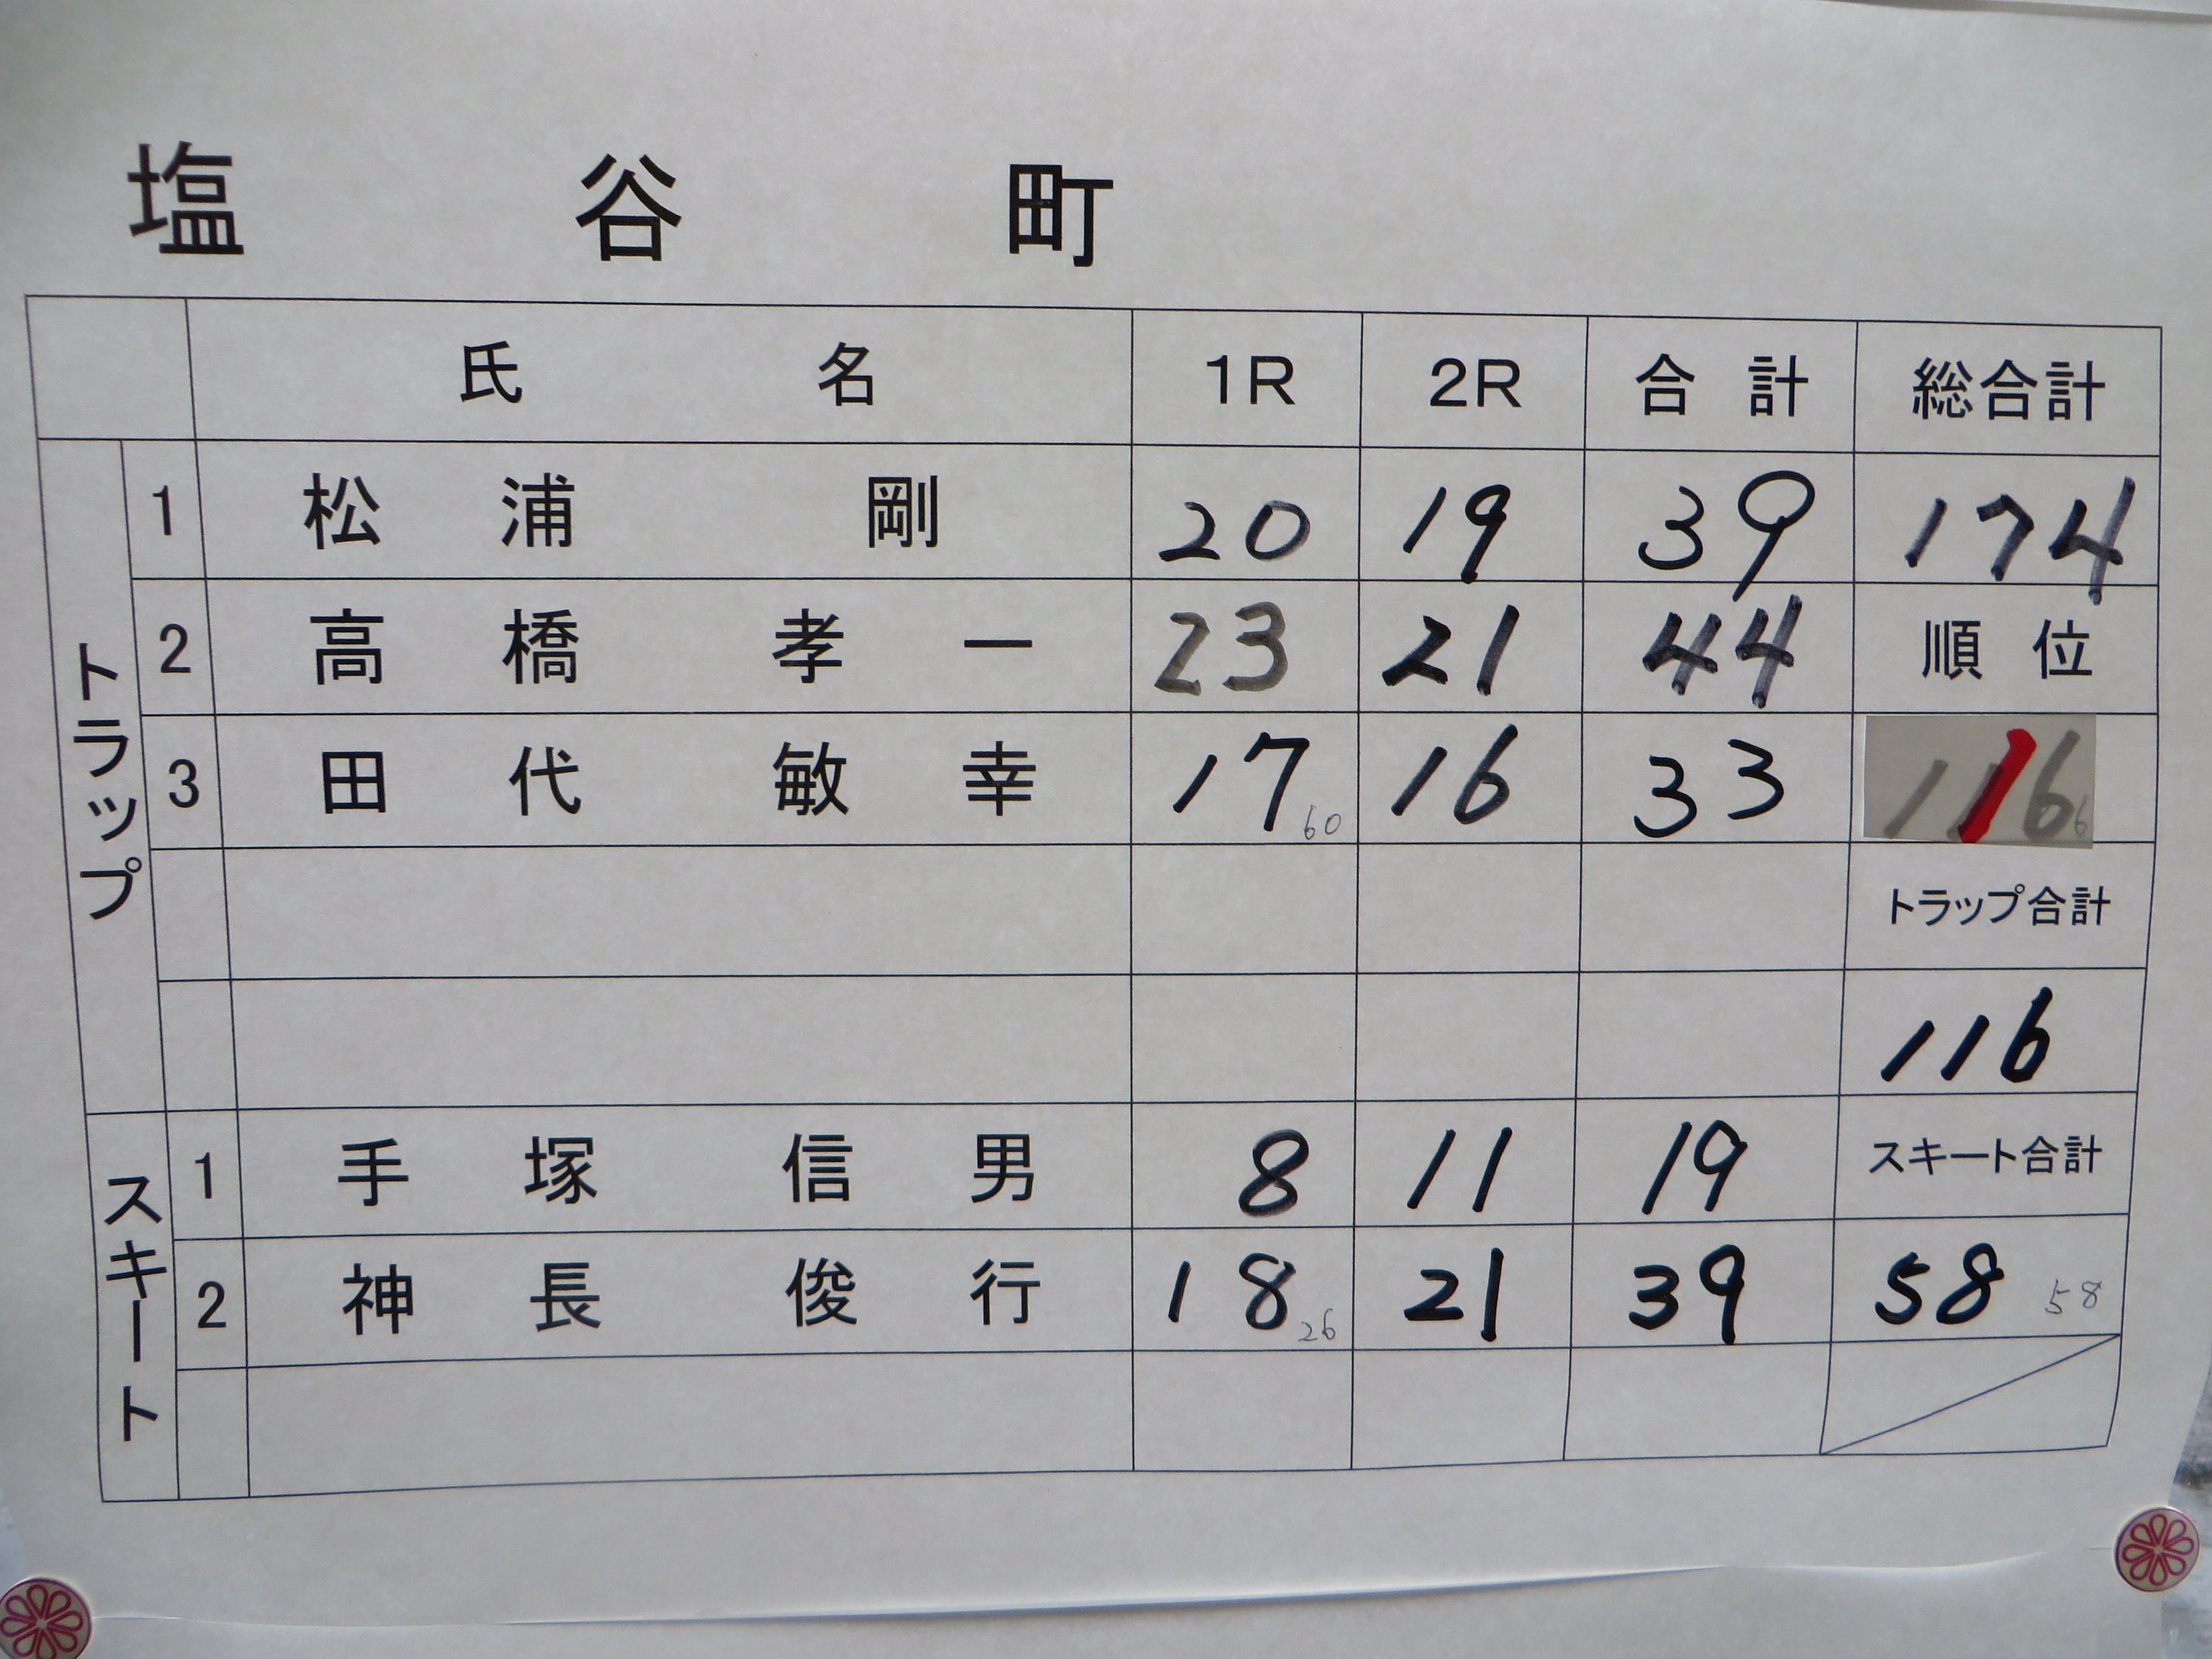 塩谷町
氏名 1R 2R 合計 総合計
トラップ
1 松浦 剛 20 19 39 174
2 高橋 孝一 23 21 44 順位
3 田代 敏幸 17 60 16 33 1
トラップ合計
116
スキート
1 手塚 信男 8 11 19 スキート合計
2 神長 俊行 18 26 21 39 58 58